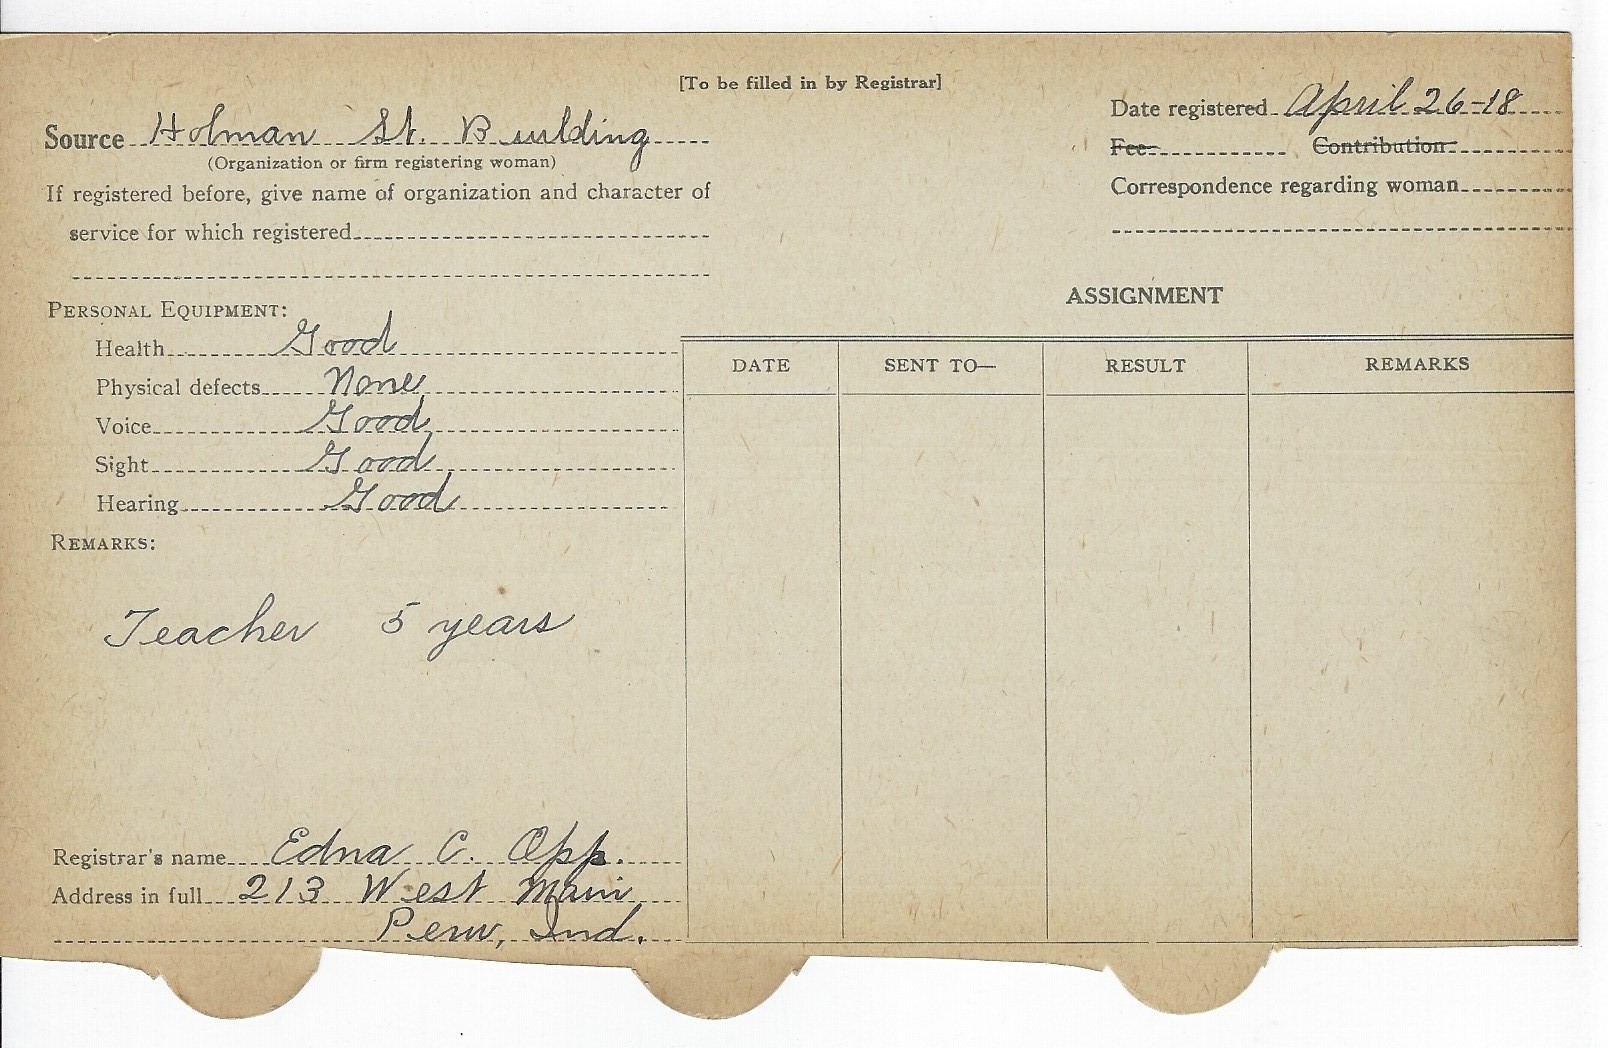 [To be filled in by Registrar]
Source Holman St. Building
(Organization or firm registering woman)
If registered before, give name of organization and character of
service for which registered
Date registered April 26-18
Fee Contribution
Correspondence regarding woman
PERSONAL EQUIPMENT:
Health Good
Physical defects None
Voice Good
Sight Good
Hearing Good
REMARKS:
Teacher 5 years
Registrar's name Edna C. Opp.
Address in full 213 West Main
Peru, Ind.
ASSIGNMENT
DATE SENT TO— RESULT REMARKS